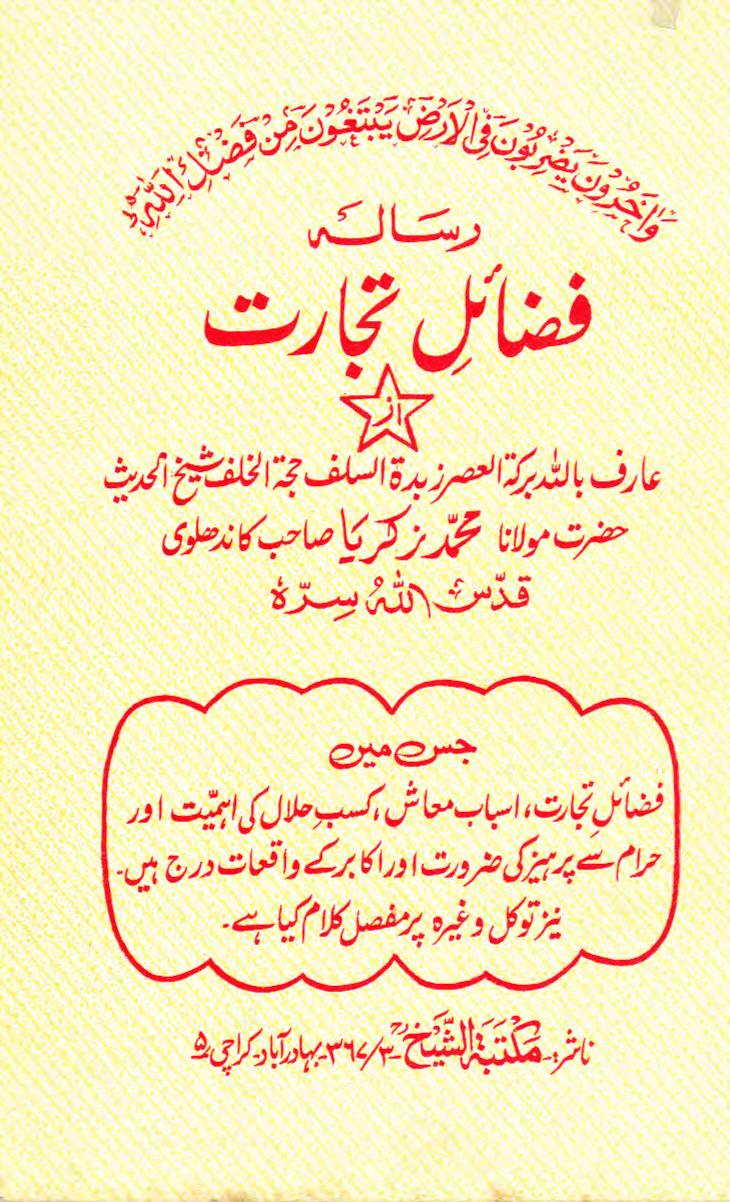 وَاٰخَرُوْنَ يَضْرِبُوْنَ فِي الْاَرْضِ يَبْتَغُوْنَ مِنْ فَضْلِ اللّٰهِ ؕ
رسالہ
فضائلِ تجارت
از
عارف باللہ برکۃ العصر زبدۃ السلف حجۃ الخلف شیخ الحدیث
حضرت مولانا محمّد زکریا صاحب کاندھلوی
قدّس اللہ سرّہٗ
جس میں
فضائلِ تجارت، اسبابِ معاش، کسبِ حلال کی اہمیّت اور
حرام سے پرہیز کی ضرورت اور اکابر کے واقعات درج ہیں۔
نیز توکل وغیرہ پر مفصل کلام کیا ہے۔
ناشر:۔ مکتبۃ الشیخ ۳/۳۶۷۔ بہادر آباد۔ کراچی ۵